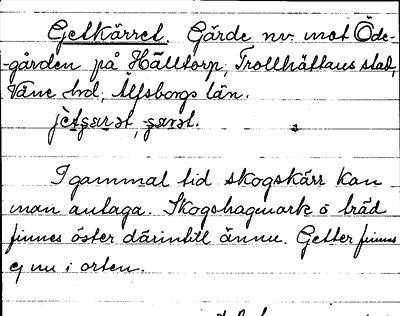 Getkärret. Gärde nv. mot Öde-
gården på Hälltorp, Trollhättans stad,
Väne hd, Älfsborgs län.
I gammal tid skogskärr kan
man antaga. Skogshagmark o träd
finnes öster därintill ännu. Getter finnes
ej nu i orten.